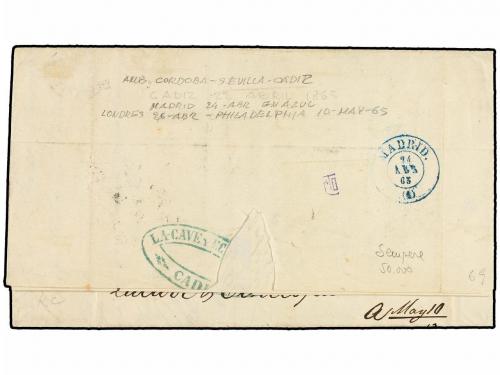 AMB. CORDOBA-SEVILLA-CADIZ
CADIZ 23 ABRIL 1865
MADRID 24-ABR EN AZUL
LONDRES 26-ABR-PHILADELPHIA 10-MAY-65
MADRID.
24
ABR
65
(1)
PD
LA-CAVE Y
CADI
Sempere
50.000
69
a May 10